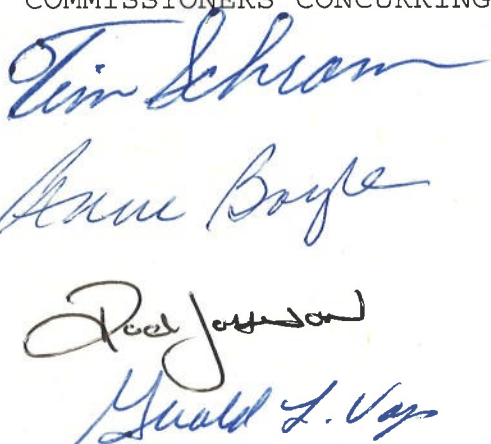 COMMISSIONERS CONCURRING
Tim Schram
Anne Boyle
Rod Johnson
Gerald L. Vap